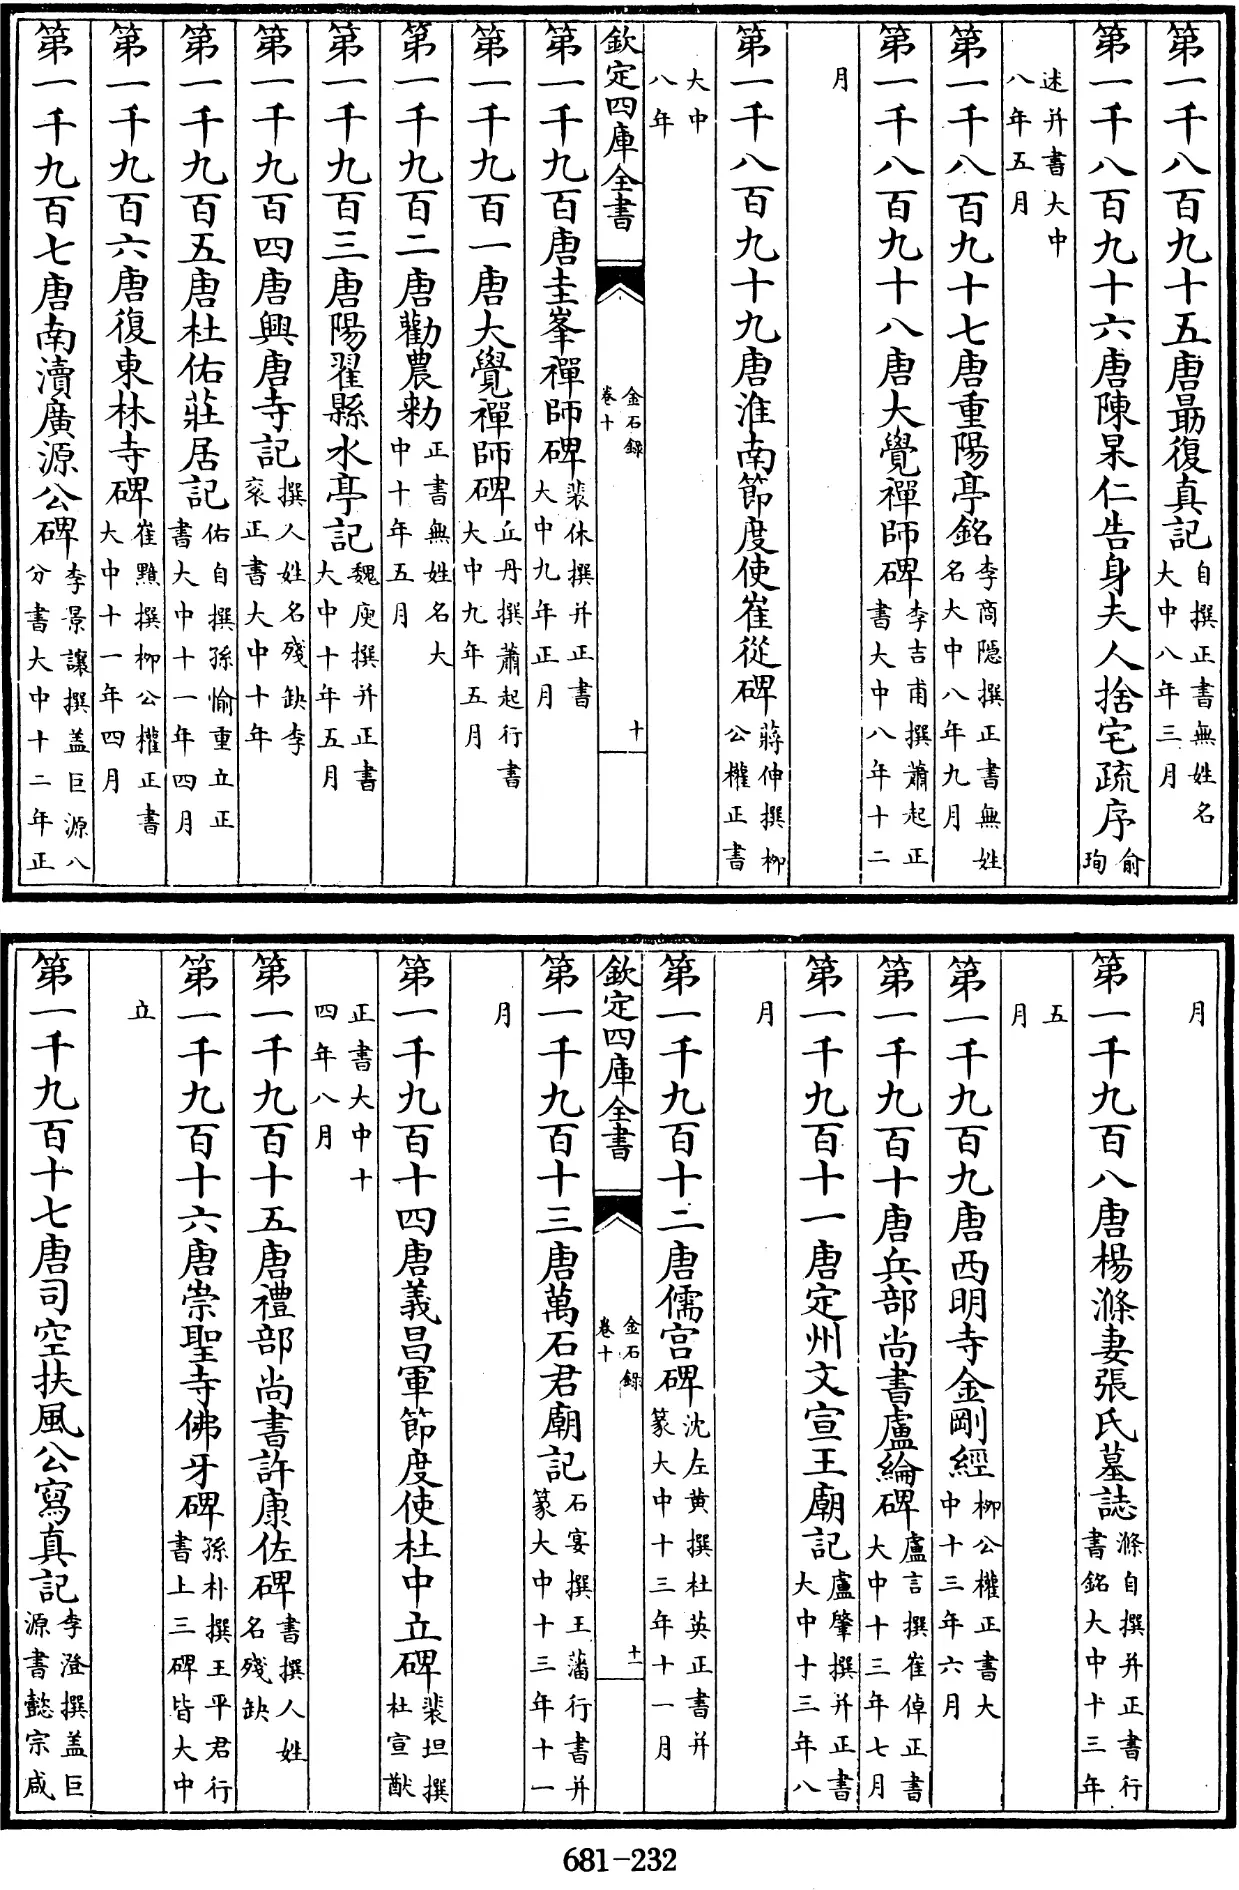 第一千八百九十五唐勗復真記自撰正書無姓名大中八年三月
第一千八百九十六唐陳杲仁告身夫人捨宅疏序俞珣
述并書大中八年五月
第一千八百九十七唐重陽亭銘李商隐撰正書無姓名大中八年九月
第一千八百九十八唐大覺禪師碑李吉甫撰蕭起正書大中八年十二
月
第一千八百九十九唐淮南節度使崔從碑蔣伸撰柳公權正書
大中八年
欽定四庫全書
金石錄
卷十
十
第一千九百唐圭峯禪師碑裴休撰并正書大中九年正月
第一千九百一唐大覺禪師碑丘丹撰蕭起行書大中九年五月
第一千九百二唐勸農勑正書無姓名大中十年五月
第一千九百三唐陽翟縣水亭記魏庾撰并正書大中十年五月
第一千九百四唐興唐寺記撰人姓名殘缺李衮正書大中十年
第一千九百五唐杜佑莊居記佑自撰孫愉重立正書大中十一年四月
第一千九百六唐復東林寺碑崔黯撰柳公權正書大中十一年四月
第一千九百七唐南瀆廣源公碑李景讓撰盖巨源八分書大中十二年正
月
第一千九百八唐楊滌妻張氏墓誌滌自撰并正書行書銘大中十三年
五月
第一千九百九唐西明寺金剛經柳公權正書大中十三年六月
第一千九百十唐兵部尚書盧綸碑盧言撰崔倬正書大中十三年七月
第一千九百十一唐定州文宣王廟記盧肇撰并正書大中十三年八
月
第一千九百十二唐儒宫碑沈左黄撰杜英正書并篆大中十三年十一月
欽定四庫全書
金石錄
卷十
十一
第一千九百十三唐萬石君廟記石宴撰王藩行書并篆大中十三年十一
月
第一千九百十四唐義昌軍節度使杜中立碑裴坦撰杜宣猷
正書大中十四年八月
第一千九百十五唐禮部尚書許康佐碑書撰人姓名殘缺
第一千九百十六唐崇聖寺佛牙碑孫朴撰王平君行書上三碑皆大中
立
第一千九百十七唐司空扶風公寫真記李澄撰盖巨源書懿宗咸
681-232